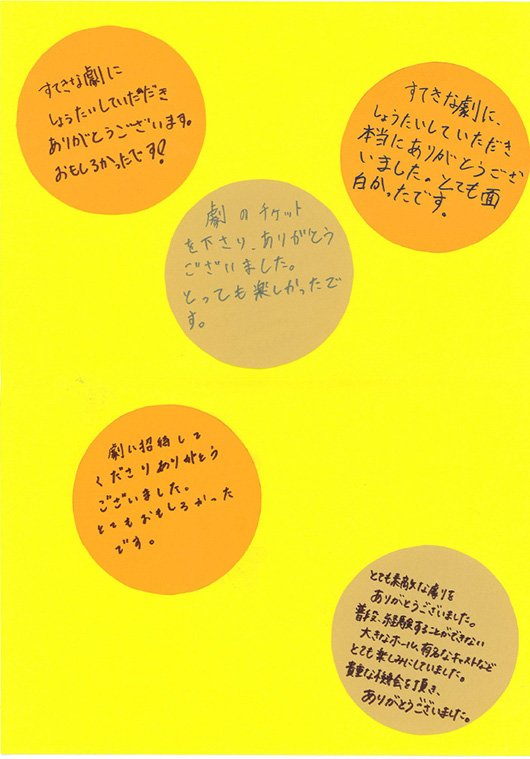 すてきな劇に
しょうたいしていただき
ありがとうございます。
おもしろかったです!
すてきな劇に、
しょうたいしていただき
本当にありがとうござ
いました。とても面
白かったです。
劇のチケット
を下さり、ありがとう
ございました。
とっても楽しかったで
す。
劇に招待して
くださりありがとう
ございました。
とてもおもしろかった
です。
とても素敵な劇を
ありがとうございました。
普段、経験することができない
大きなホール、有名なキャストなど
とても楽しみにしていました。
貴重な機会を頂き、
ありがとうございました。